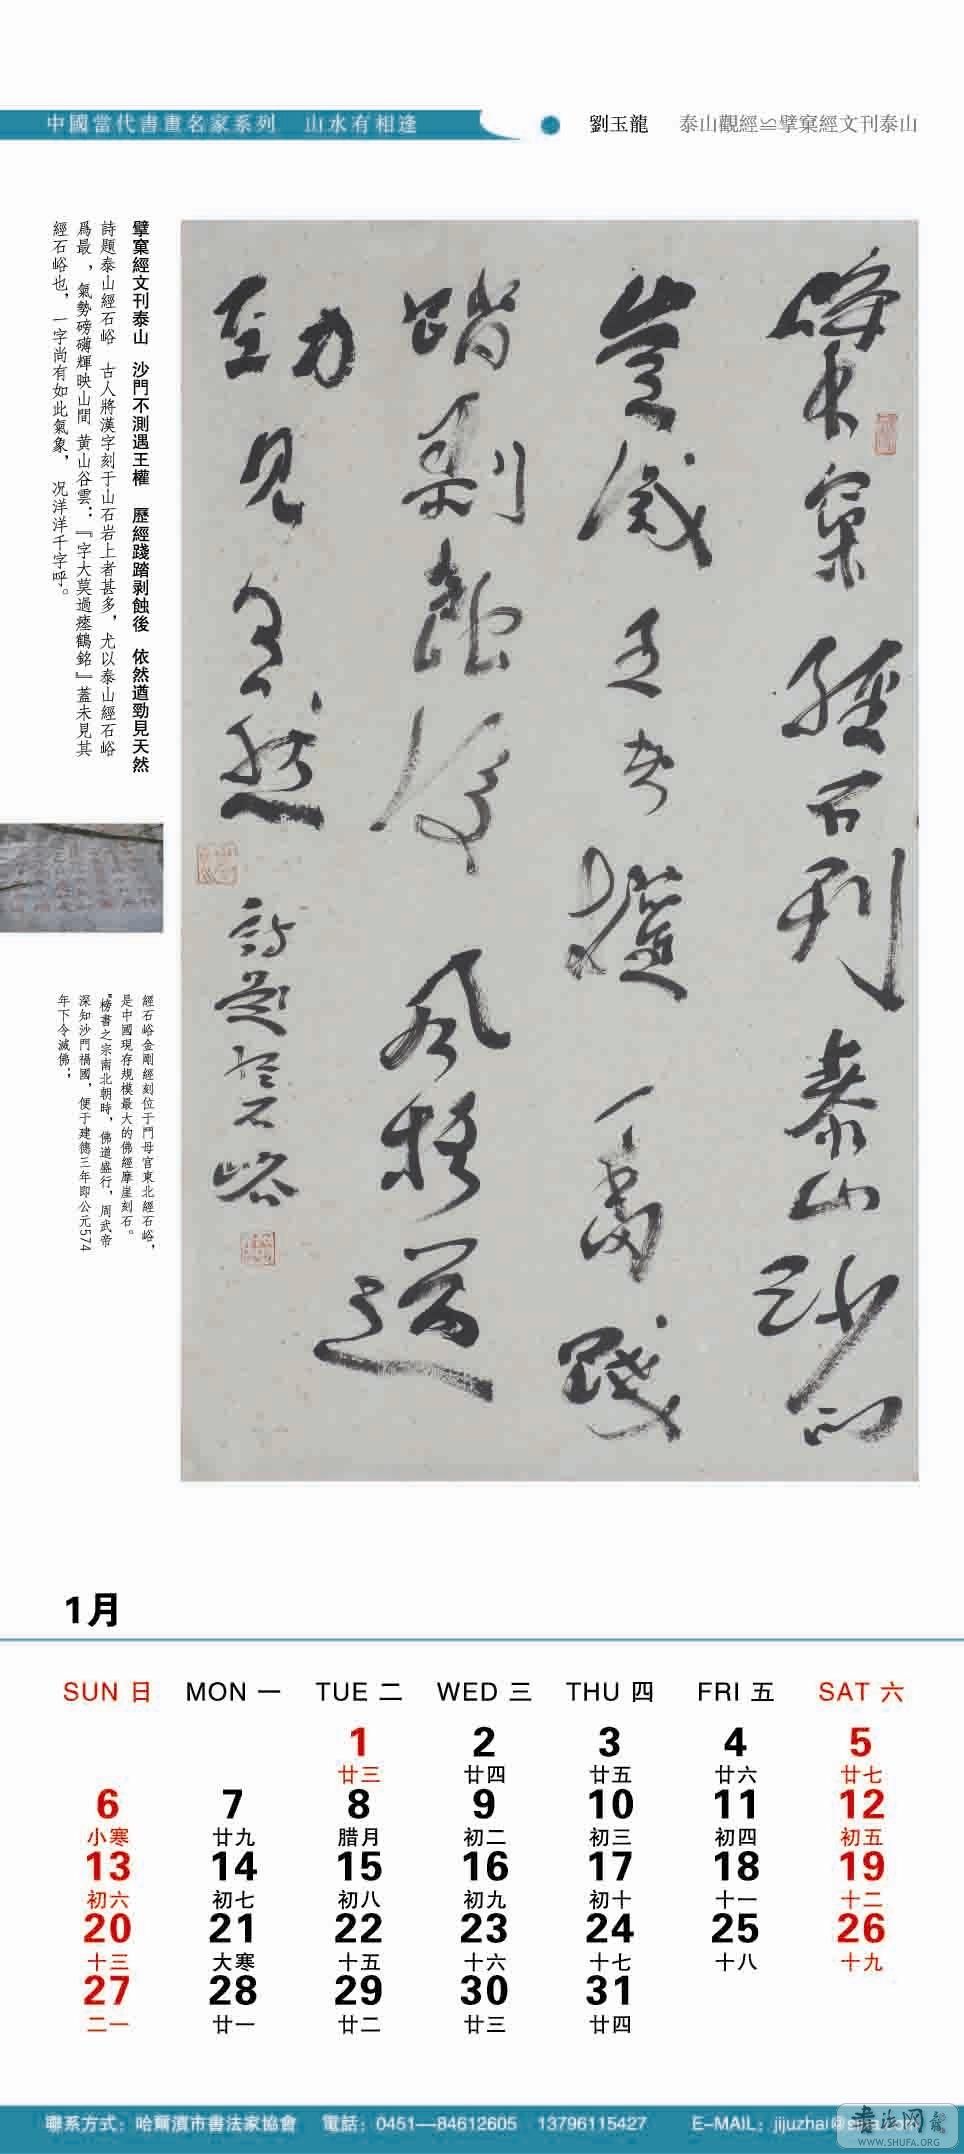 中國當代書畫名家系列 山水有相逢
劉玉龍 泰山觀經≌擘窠經文刊泰山
擘窠經文刊泰山 沙門不測遇王權 歷經踐踏剥蝕後 依然遒勁見天然
詩題泰山經石峪 古人將漢字刻于山石岩上者甚多，尤以泰山經石峪
爲最，氣勢磅礴輝映山間 黄山谷雲：『字大莫過瘞鶴銘』蓋未見其
經石峪也，一字尚有如此氣象， 况洋洋千字呼。
擘窠經石刊泰山沙門
豈
踐
踏剥蝕後風格遒
勁見自然
詩題經石峪
經石峪金剛經刻位于鬥母宫東北經石峪，
是中國現存規模最大的佛經摩崖刻石。
"榜書之宗南北朝時，佛道盛行，周武帝
深知沙門禍國，便于建德三年即公元574
年下令滅佛；
1月
SUN 日 MON 一 TUE 二 WED 三 THU 四 FRI 五 SAT 六
1 2 3 4 5
廿三 廿四 廿五 廿六 廿七
6 7 8 9 10 11 12
小寒 廿九 腊月 初二 初三 初四 初五
13 14 15 16 17 18 19
初六 初七 初八 初九 初十 十一 十二
20 21 22 23 24 25 26
十三 大寒 十五 十六 十七 十八 十九
27 28 29 30 31
二一 廿一 廿二 廿三 廿四
聯系方式：哈爾濱市書法家協會 電話：0451—84612605 13796115427 E-MAIL：jijuzhai@sina.com
書法网
WWW.SHUFA.ORG